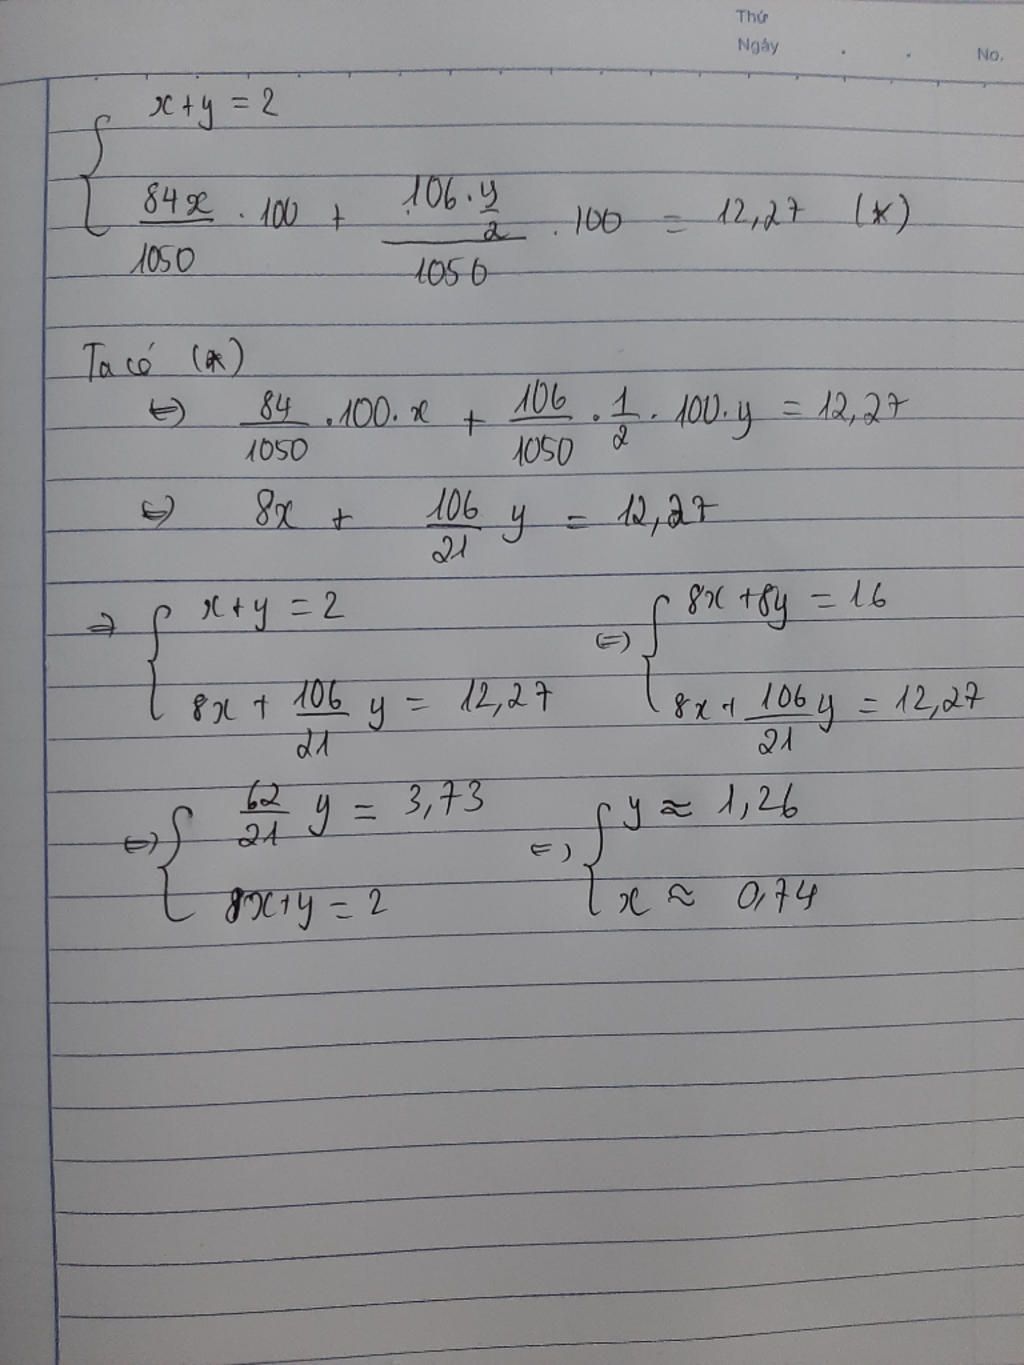 Thứ
Ngày . . No.
{ x+y = 2
84x/1050 . 100 + (106 . y/2)/1050 . 100 = 12,27 (*)
Ta có (*)
⇔ 84/1050 . 100 . x + 106/1050 . 1/2 . 100 . y = 12,27
⇔ 8x + 106/21 y = 12,27
⇒ { x+y = 2 ⇔ { 8x + 8y = 16
8x + 106/21 y = 12,27 8x + 106/21 y = 12,27
⇔ { 62/21 y = 3,73 ⇔ { y ≈ 1,26
x+y = 2 x ≈ 0,74